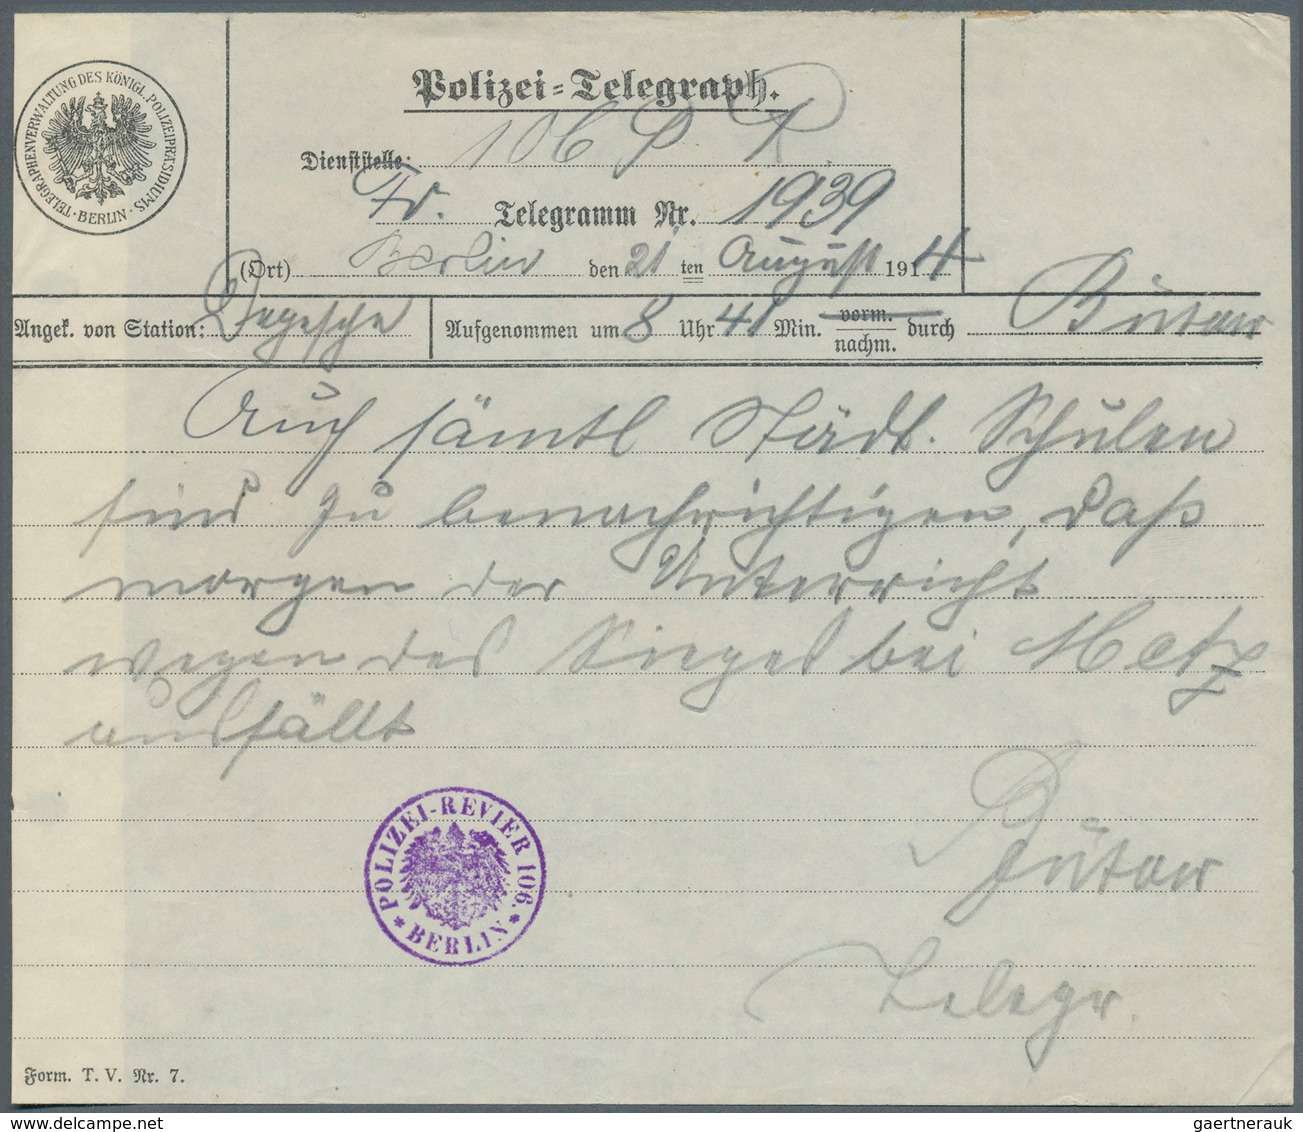 TELEGRAPHENVERWALTUNG DES KÖNIGL. POLIZEIPRÄSIDIUMS · BERLIN ·
Polizei=Telegraph.
Dienststelle: 106 P R.
Telegramm Nr. 1939
(Ort) Berlin den 21 ten August 1914
Angek. von Station: Aufgenommen um 8 Uhr 41 Min. vorm. nachm. durch Bütow
Auch sämtl Städt. Schulen
sind zu benachrichtigen, daß
morgen der Unterricht
wegen des Sieges bei Metz
ausfällt
POLIZEI-REVIER 106. * BERLIN *
Bütow
Telegr.
Form. T. V. Nr. 7.
gaertnerauk